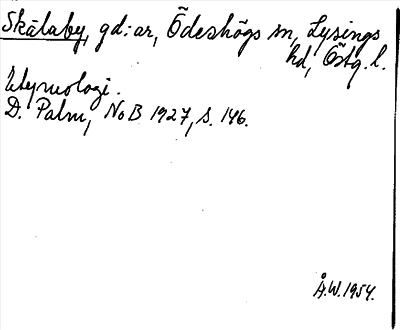 Skälaby, gd:ar, Ödeshögs sn, Lysings
hd, Östg. l.
Etymologi.
D. Palm, NoB 1927, s. 146.
Å.W. 1954.